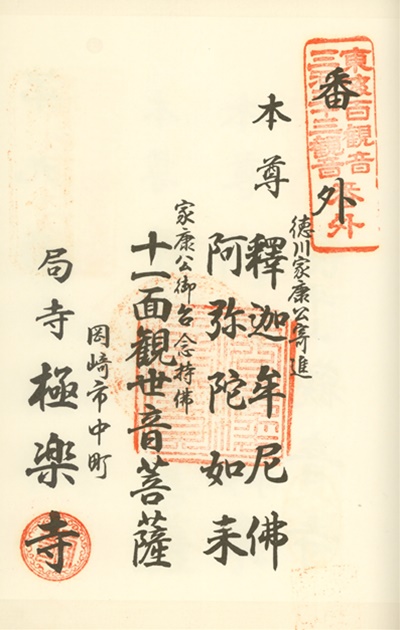 東海百觀音
三河三十三觀音
番外
番外
徳川家康公寄進
本尊 釋迦牟尼佛
阿弥陀如来
家康公御台念持佛
十一面觀世音菩薩
岡崎市中町
局寺 極楽寺